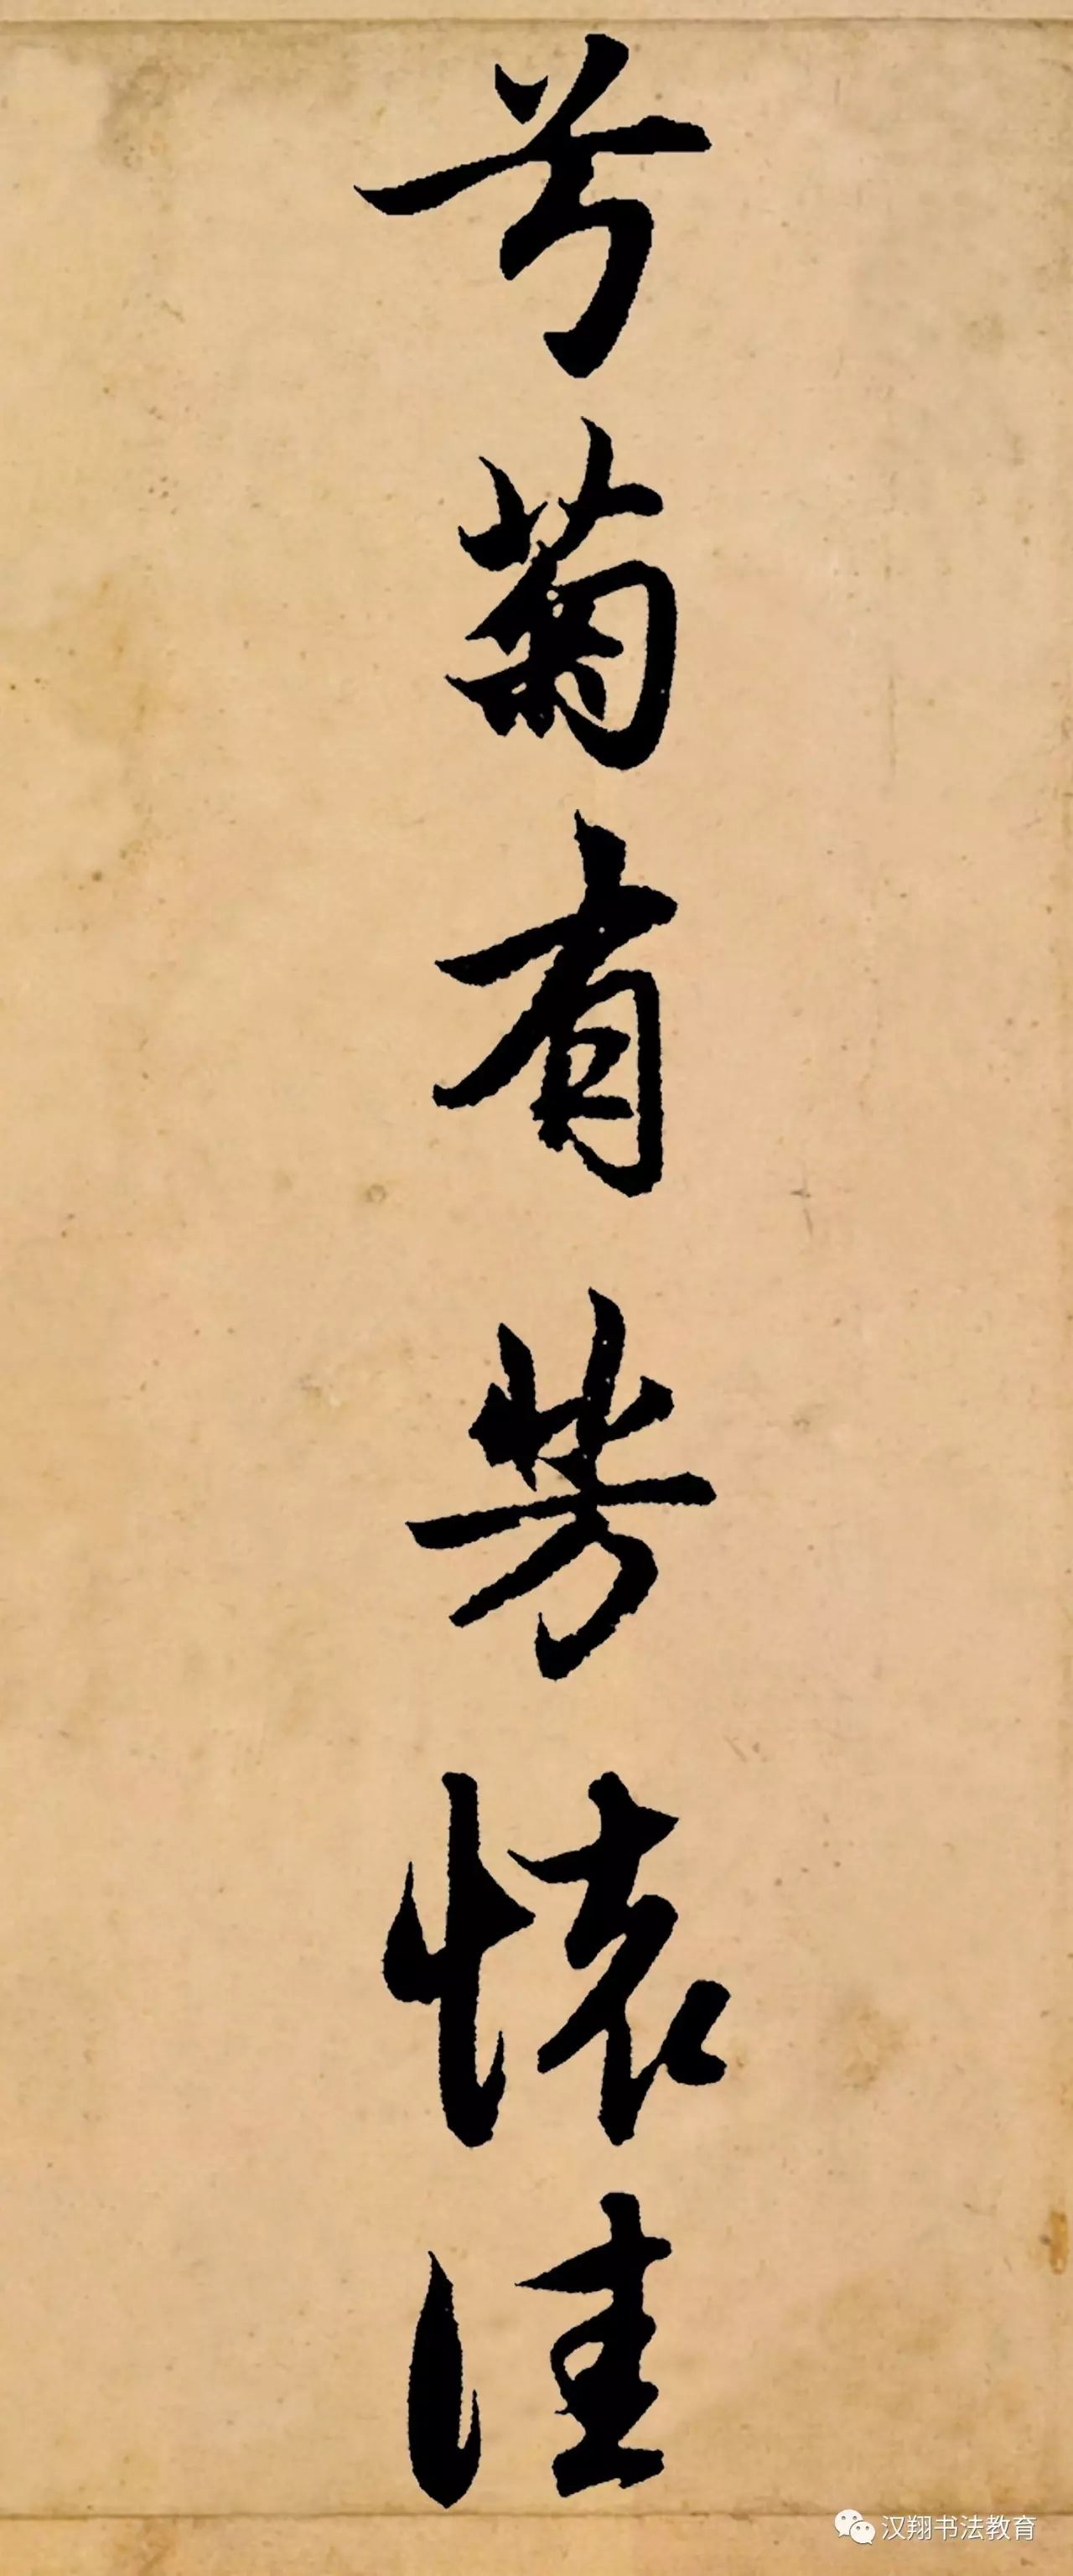 兮菊有芳懷佳
汉翔书法教育